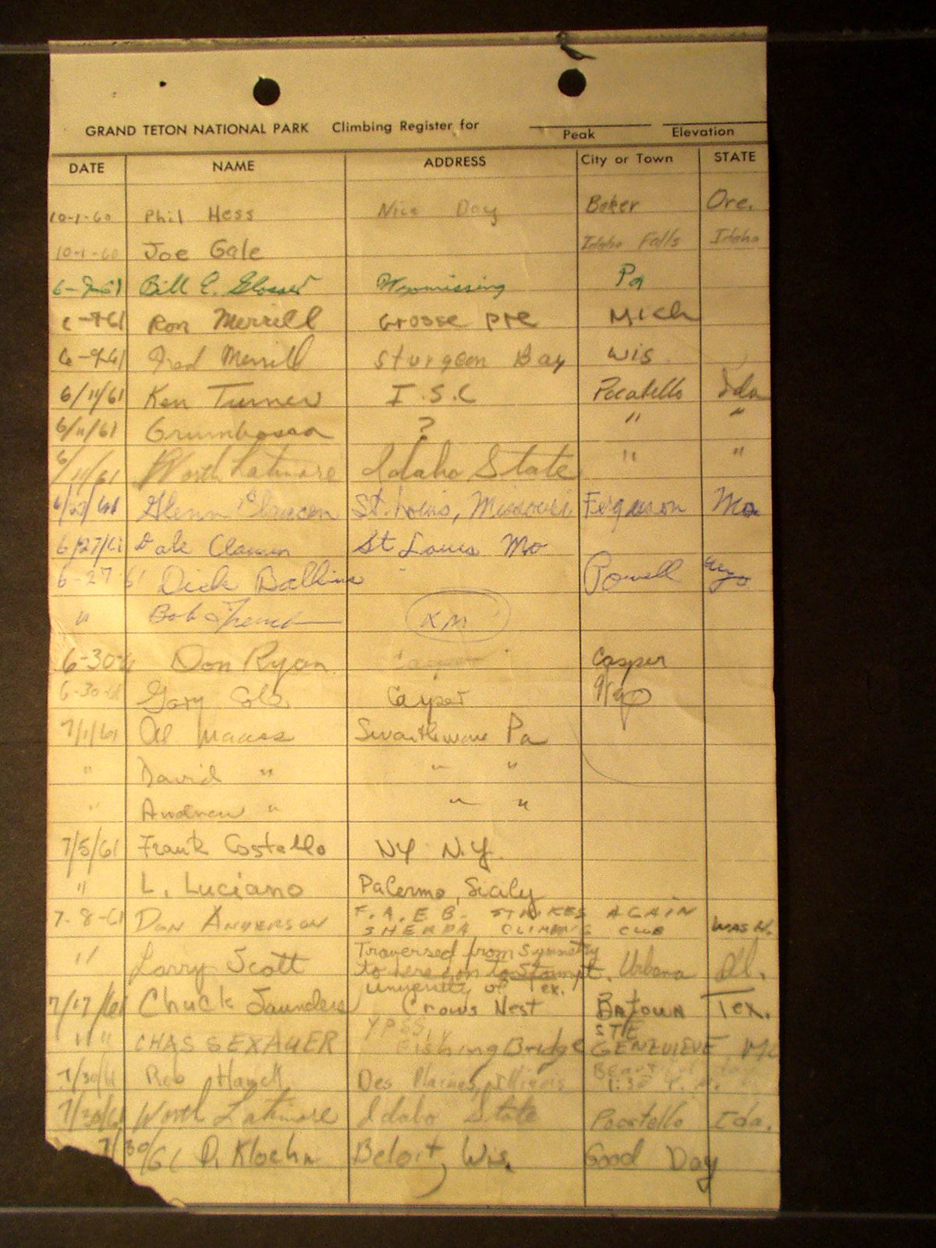 GRAND TETON NATIONAL PARK Climbing Register for
Peak Elevation
DATE NAME ADDRESS City or Town STATE
10-1-60 Phil Hess Nice Day Baker Ore.
10-1-60 Joe Gale Idaho Falls Idaho
6-9-61 Bill E. Glosser Wyomissing Pa
6-9-61 Ron Merrill Grosse Pte Mich
6-9-61 Fred Merrill Sturgeon Bay Wis
6/11/61 Ken Turner I.S.C Pocatello Ida
6/11/61 ? " "
6/11/61 Worth Latimore Idaho State " "
Glenn St. Louis, Missouri Ferguson Mo
6/27/61 Dale St Louis Mo
6-27-61 Dick Powell Wyo
" Bob French KM
6-30-61 Don Ryan Casper Casper
6-30-61 Gary Cole Casper Wyo
7/1/61 Al Maass Swarthmore Pa
" David " " "
" Andrew " " "
7/5/61 Frank Costello NY N.Y.
" L. Luciano Palermo, Sicily
7-8-61 Don Anderson F.A.E.B. STRIKES AGAIN
SHERPA CLIMBING CLUB WASH.
" Larry Scott Traversed from Symmetry
to here on to St. Urbana Ill.
University of Tex.
7/17/61 Chuck Saunders Crows Nest Baytown Tex.
" " CHAS SEXAUER YPSS, Fishing Bridge STE GENEVIEVE, Mo
7/30/61 Des Plaines, Illinois Beautiful day
1:30 P.M.
7/30/61 Worth Latimore Idaho State Pocatello Ida.
7/30/61 D. Kloehn Beloit, Wis. Good Day